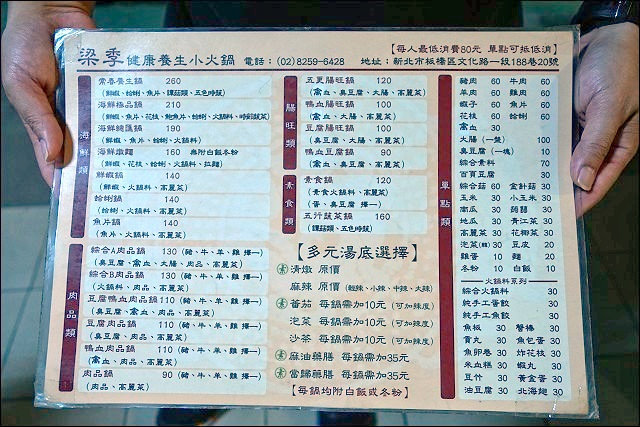 梁季健康養生小火鍋 電話:(02)8259-6428 地址:新北市板橋區文化路一段188巷20號
【每人最低消費80元 單點可抵低消】
海鮮類
常春養生鍋 260
海鮮極品鍋 210
海鮮總匯鍋 190
海鮮燉麵 160 無附白飯冬粉
(鮮蝦、花枝、蛤蜊、火鍋料、拉麵)
鮮蝦鍋 140
(鮮蝦、火鍋料、高麗菜)
蛤蜊鍋 140
(蛤蜊、火鍋料、高麗菜)
魚片鍋 140
(魚片、火鍋料、高麗菜)
肉品類
綜合A肉品鍋 130 (豬、牛、羊、雞 擇一)
(臭豆腐、禽血、大腸、肉品、高麗菜)
綜合B肉品鍋 130 (豬、牛、羊、雞 擇一)
(禽血、蛤蜊、火鍋料、肉品、高麗菜)
豆腐鴨血肉品鍋 110 (豬、牛、羊、雞 擇一)
(臭豆腐、禽血、肉品、高麗菜)
豆腐肉品鍋 110 (豬、牛、羊、雞 擇一)
(臭豆腐、肉品、高麗菜)
鴨血肉品鍋 110 (豬、牛、羊、雞 擇一)
(禽血、肉品、高麗菜)
肉品鍋 90 (豬、牛、羊、雞 擇一)
(肉品、高麗菜)
腸旺類
五更腸旺鍋 120
(禽血、臭豆腐、大腸、高麗菜)
鴨血腸旺鍋 100
(禽血、大腸、高麗菜)
豆腐腸旺鍋 100
(臭豆腐、大腸、高麗菜)
鴨血豆腐鍋 90
(禽血、臭豆腐、高麗菜)
素食類
素食鍋 120
(素食火鍋料、高麗菜)
(醬、臭豆腐、高麗菜)
五汁蔬菜鍋 160
【多元湯底選擇】
素 清燉 原價
麻辣 原價 (微辣、小辣、中辣、大辣)
素 番茄 每鍋需加10元 (可加辣度)
泡菜 每鍋需加10元 (可加辣度)
沙茶 每鍋需加10元 (可加辣度)
素 麻油藥膳 每鍋需加35元
素 當歸藥膳 每鍋需加35元
【每鍋均附白飯或冬粉】
單點類
豬肉 60 牛肉 60
羊肉 60 雞肉 60
蝦子 60 魚片 60
花枝 60 蛤蜊 60
禽血 30
大腸(一盤) 100
臭豆腐(一塊) 10
綜合素料 70
百頁豆腐 30
綜合菇 60 金針菇 30
玉米 30 小玉米 30
南瓜 30 蒟蒻 30
純瓜 30 青江菜 30
高麗菜 30 花椰菜 30
泡菜 30 豆皮 20
雞蛋 10 麵 20
冬粉 10 白飯 10
火鍋料系列
綜合火鍋料 30
純手工蛋餃 30
純手工魚餃 30
魚板 30 蟹棒 30
貢丸 30 魚包蛋 30
魚卵卷 30 炸花枝 30
米血糕 30 蝦丸 30
豆竹 30 黃金蛋 30
油豆腐 30 北海翅 30